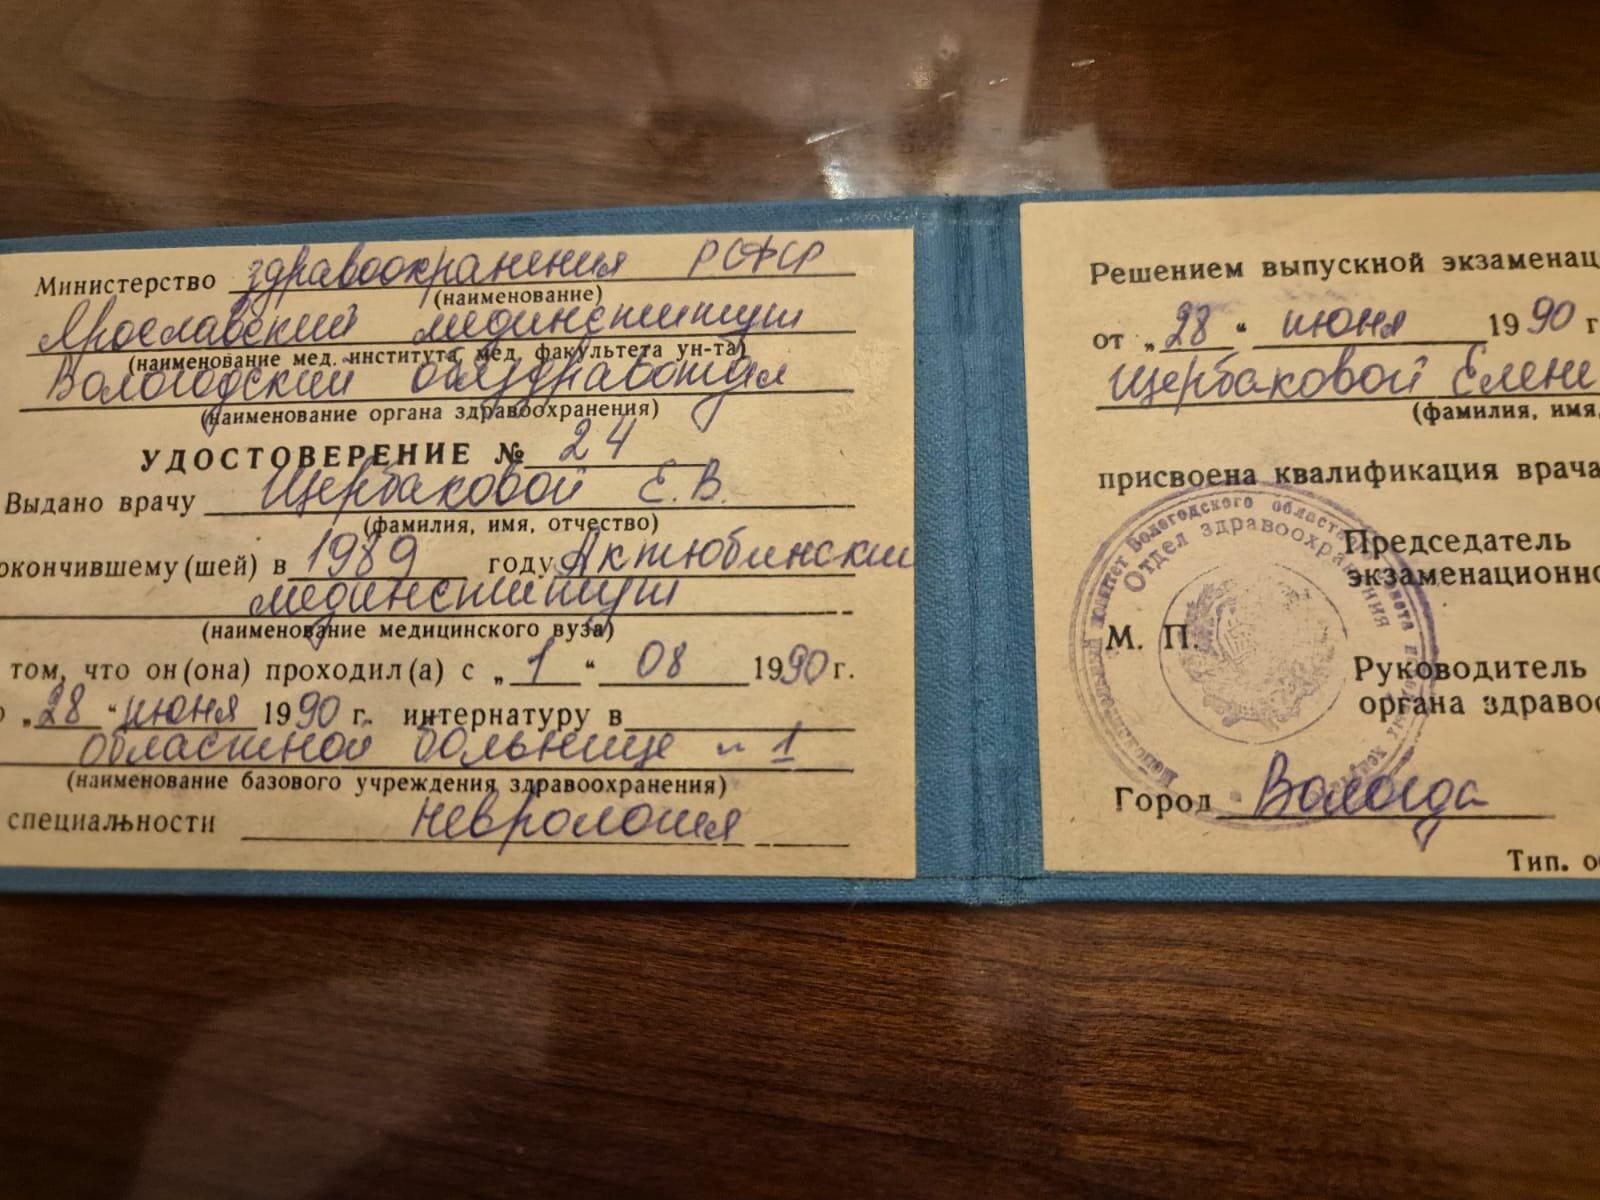 Министерство здравоохранения РСФСР
(наименование)
Ярославский мединститут
(наименование мед. института, мед. факультета ун-та)
Вологодский облздравотдел
(наименование органа здравоохранения)
УДОСТОВЕРЕНИЕ № 24
Выдано врачу Щербаковой Е.В.
(фамилия, имя, отчество)
окончившему(шей) в 1989 году Актюбинский
мединститут
(наименование медицинского вуза)
том, что он(она) проходил(а) с „1“ 08 1990 г.
„28“ июня 1990 г. интернатуру в
областной больнице № 1
(наименование базового учреждения здравоохранения)
специальности Неврология
Решением выпускной экзаменац
от „28“ июня 1990 г
Щербаковой Елене
(фамилия, имя,
присвоена квалификация врача
Председатель
экзаменационно
М. П.
Руководитель
органа здравоо
Город Вологда
Тип. о
Вологодского областного Совета
Отдел здравоохранения